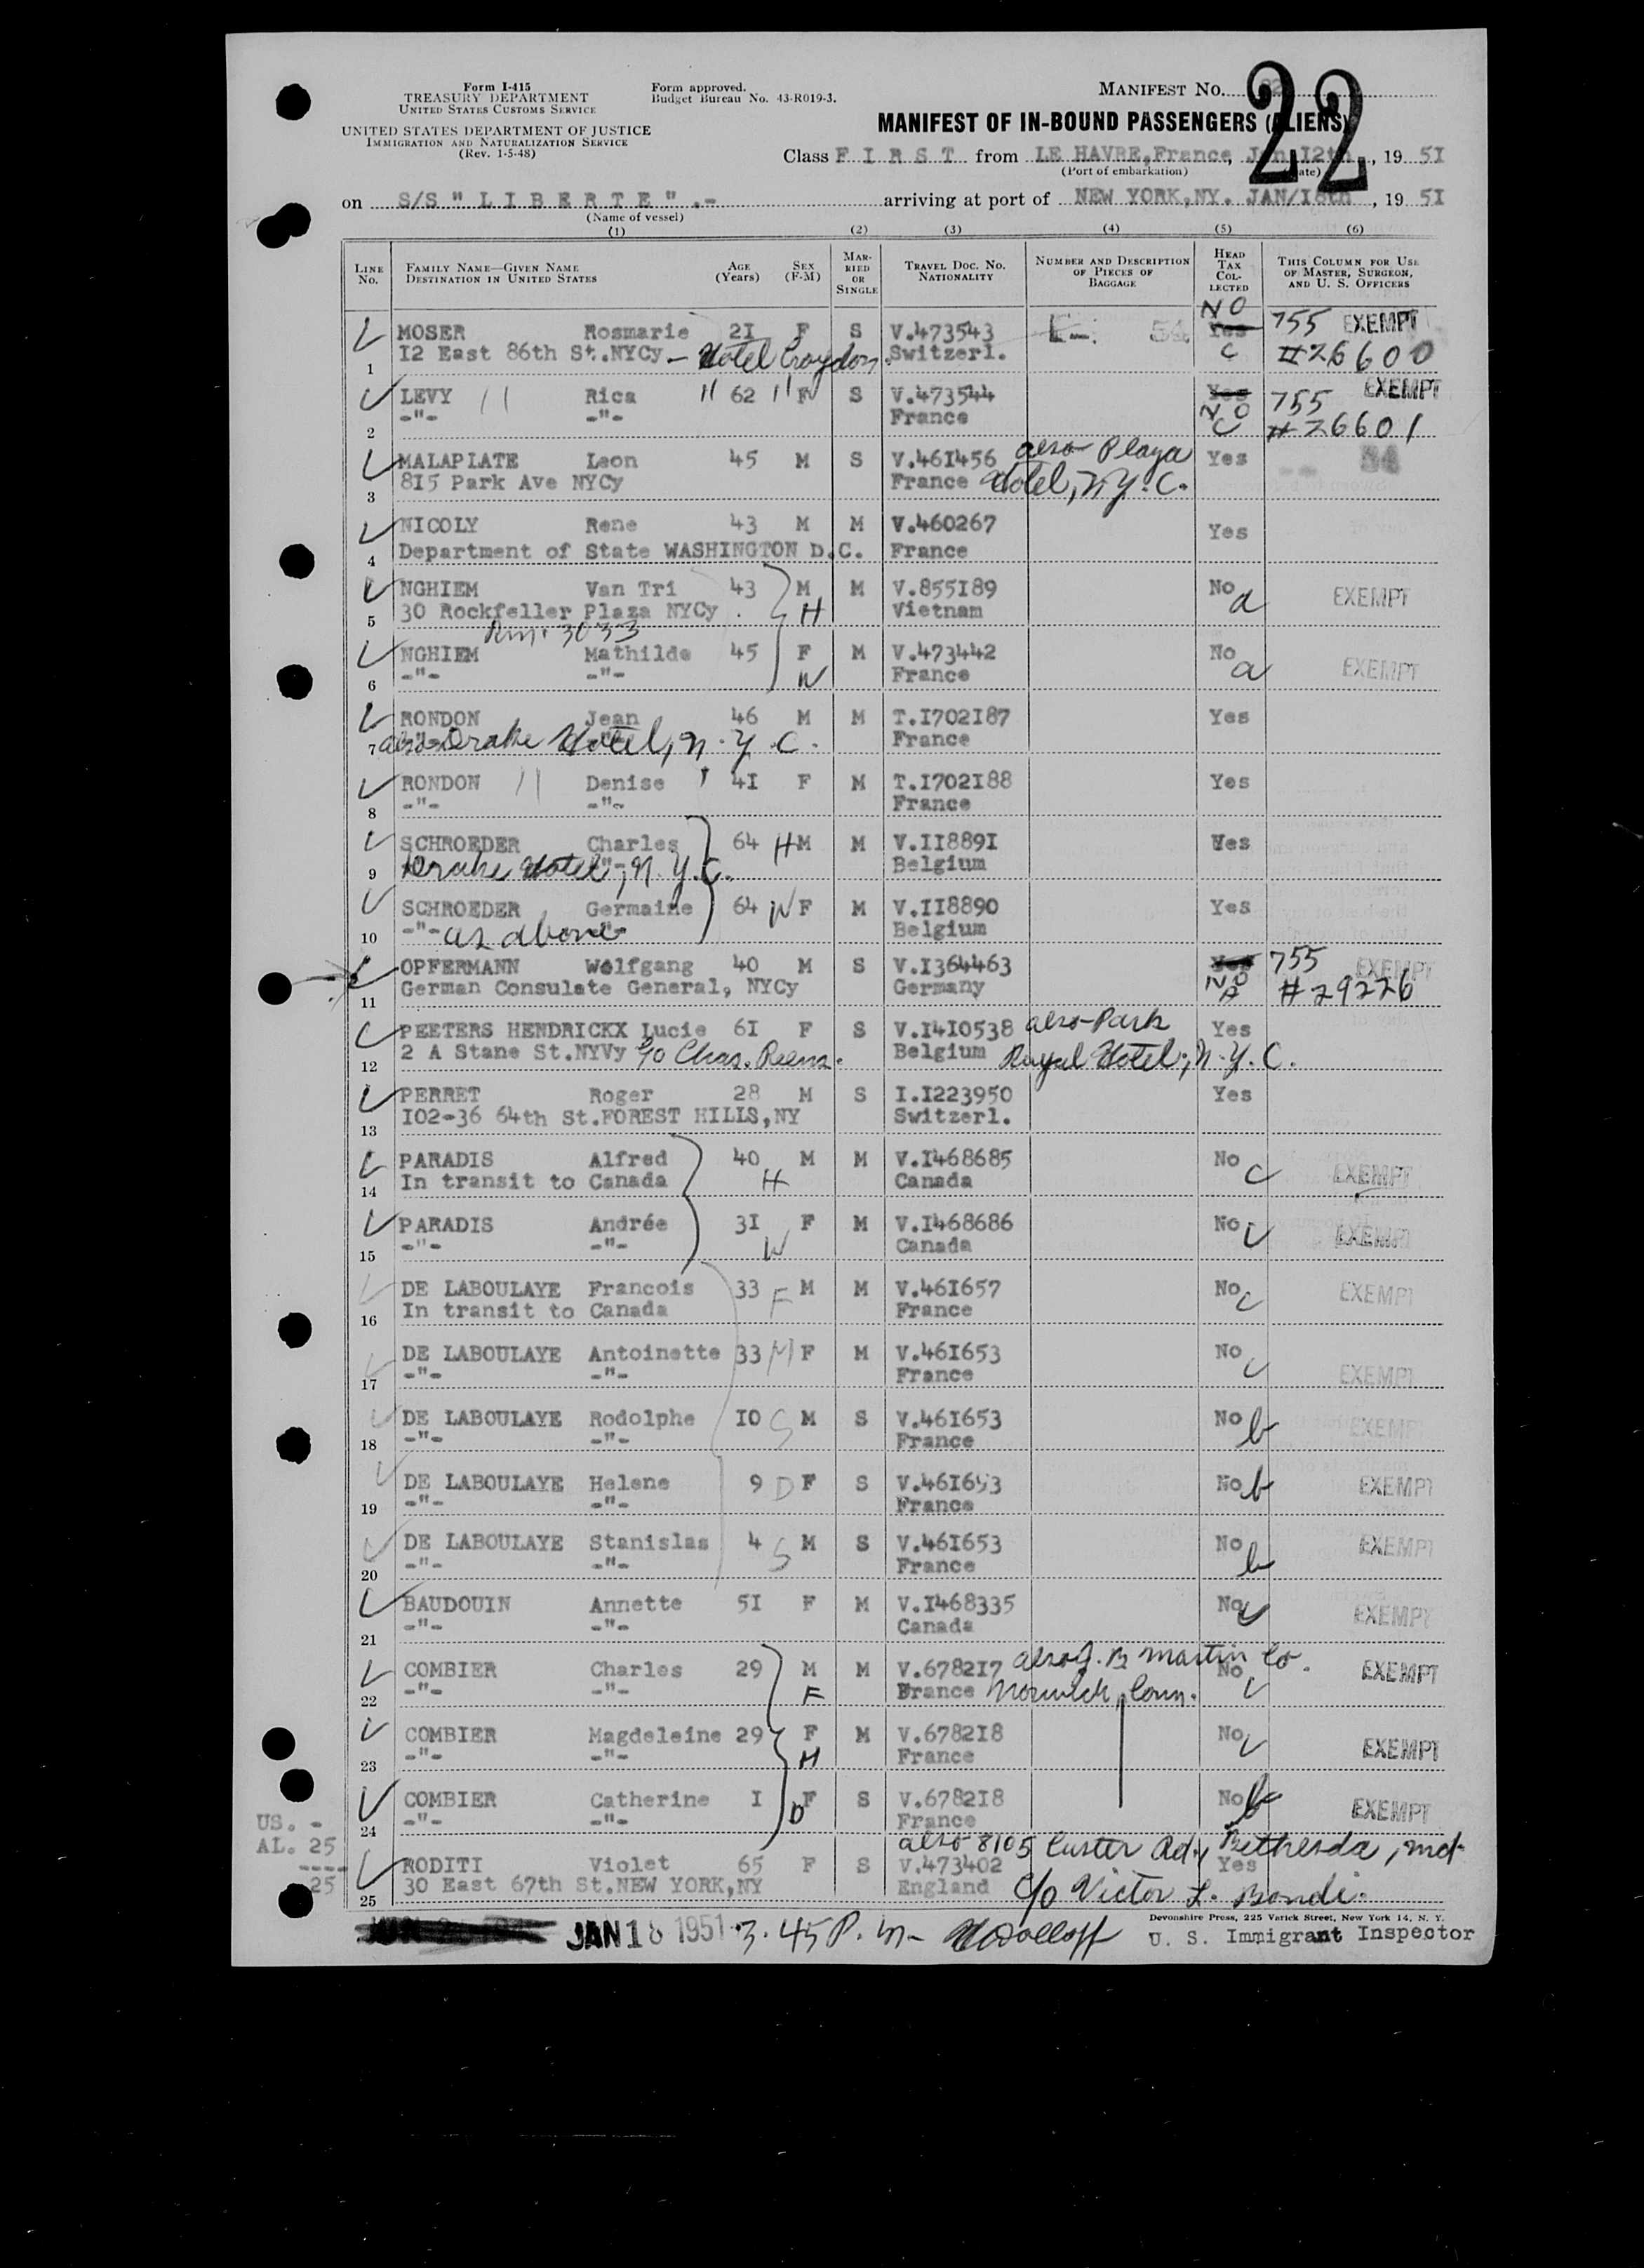 Form I-415
TREASURY DEPARTMENT
UNITED STATES CUSTOMS SERVICE
UNITED STATES DEPARTMENT OF JUSTICE
IMMIGRATION AND NATURALIZATION SERVICE
(Rev. 1-5-48)
Form approved.
Budget Bureau No. 43-R019-3.
MANIFEST No. 22
MANIFEST OF IN-BOUND PASSENGERS (ALIENS)
Class F I R S T from LE HAVRE,France, Jan 12th, 19 5I
(Port of embarkation) (Date)
on S/S " L I B E R T E " .- arriving at port of NEW YORK,NY. JAN/I8th, 19 5I
(Name of vessel)
(1) (2) (3) (4) (5) (6)
LINE No. FAMILY NAME—GIVEN NAME DESTINATION IN UNITED STATES AGE (Years) SEX (F-M) MARRIED OR SINGLE TRAVEL DOC. NO. NATIONALITY NUMBER AND DESCRIPTION OF PIECES OF BAGGAGE HEAD TAX COLLECTED THIS COLUMN FOR USE OF MASTER, SURGEON, AND U. S. OFFICERS
MOSER Rosmarie 2I F S V.473543 NO Yes 755 EXEMPT
1 I2 East 86th St.NYCy - Hotel Croydon. Switzerl. C #26600
LEVY 11 Rica " 62 " F S V.473544 Yes 755 EXEMPT
2 -"- -"- France NO C #26601
MALAPLATE Leon 45 M S V.46I456 also Plaza Yes
3 8I5 Park Ave NYCy France Hotel, N.Y.C.
NICOLY Rene 43 M M V.460267 Yes
4 Department of State WASHINGTON D.C. France
NGHIEM Van Tri 43 M M V.855I89 No a EXEMPT
5 30 Rockfeller Plaza NYCy H Vietnam
Rm. 3033
NGHIEM Mathilde 45 F M V.473442 No a EXEMPT
6 -"- -"- W France
RONDON Jean 46 M M T.I702I87 Yes
7 also Drake Hotel, N.Y.C. France
RONDON 11 Denise 4I F M T.I702I88 Yes
8 -"- -"- France
SCHROEDER Charles 64 H M M V.II889I Yes
9 Drake Hotel, N.Y.C. Belgium
SCHROEDER Germaine 64 W F M V.II8890 Yes
10 -"- as above Belgium
OPFERMANN Wolfgang 40 M S V.I364463 Yes 755 EXEMPT
11 German Consulate General, NYCy Germany NO A #29226
PEETERS HENDRICKX Lucie 6I F S V.I4I0538 also-Park Yes
12 2 A Stane St.NYVy c/o Chas. Belgium Royal Hotel, N.Y.C.
PERRET Roger 28 M S I.I223950 Yes
13 I02-36 64th St.FOREST HILLS,NY Switzerl.
PARADIS Alfred 40 M M V.I468685 No C EXEMPT
14 In transit to Canada H Canada
PARADIS Andrée 3I F M V.I468686 No C EXEMPT
15 -"- -"- W Canada
DE LABOULAYE Francois 33 F M M V.46I657 No C EXEMPT
16 In transit to Canada France
DE LABOULAYE Antoinette 33 M F M V.46I653 No C EXEMPT
17 -"- -"- France
DE LABOULAYE Rodolphe IO S M S V.46I653 No b EXEMPT
18 -"- -"- France
DE LABOULAYE Helene 9 D F S V.46I653 No b EXEMPT
19 -"- -"- France
DE LABOULAYE Stanislas 4 S M S V.46I653 No b EXEMPT
20 -"- -"- France
BAUDOUIN Annette 5I F M V.I468335 No C EXEMPT
21 -"- -"- Canada
COMBIER Charles 29 M M V.6782I7 also J. B Martin Co. No C EXEMPT
22 -"- -"- F France Norwich, Conn.
COMBIER Magdeleine 29 F M V.6782I8 No C EXEMPT
23 -"- -"- M France
COMBIER Catherine I D F S V.6782I8 No b EXEMPT
24 -"- -"- France
US. -
AL. 25
----
25
also 8105 Custer Rd., Bethesda, Md.
RODITI Violet 65 F S V.473402 Yes
25 30 East 67th St.NEW YORK,NY England c/o Victor L. Bondi.
JAN 18 1951 3.45 P.M-
Devonshire Press, 225 Varick Street, New York 14, N. Y.
U. S. Immigrant Inspector